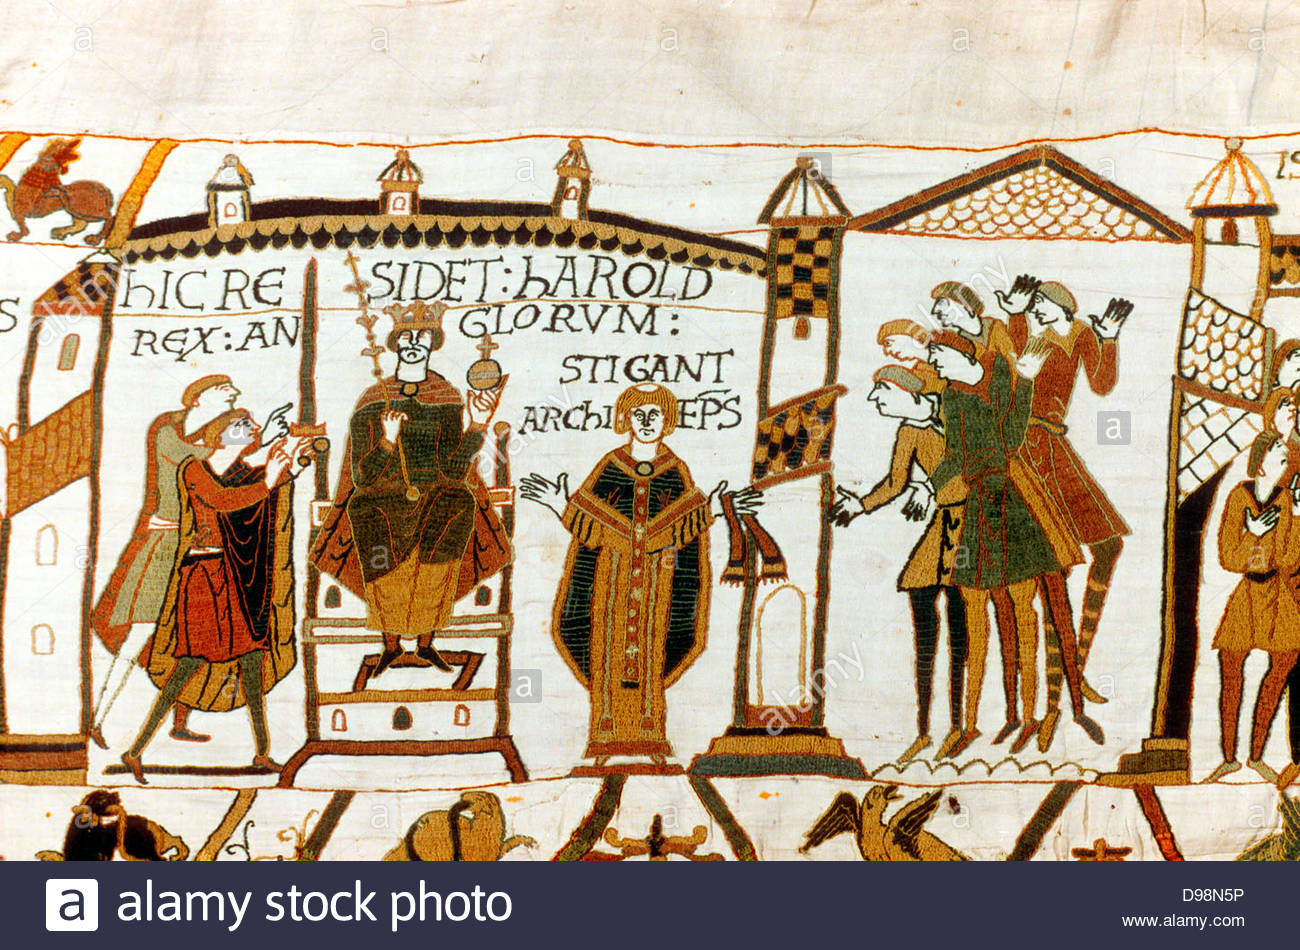 hIC RE SIDET : hAROLD
REX : AN GLORVM :
STIGANT
ARCHI EP̅S
S
IS
a alamy stock photo
alamy
a
D98N5P
www.alamy.com